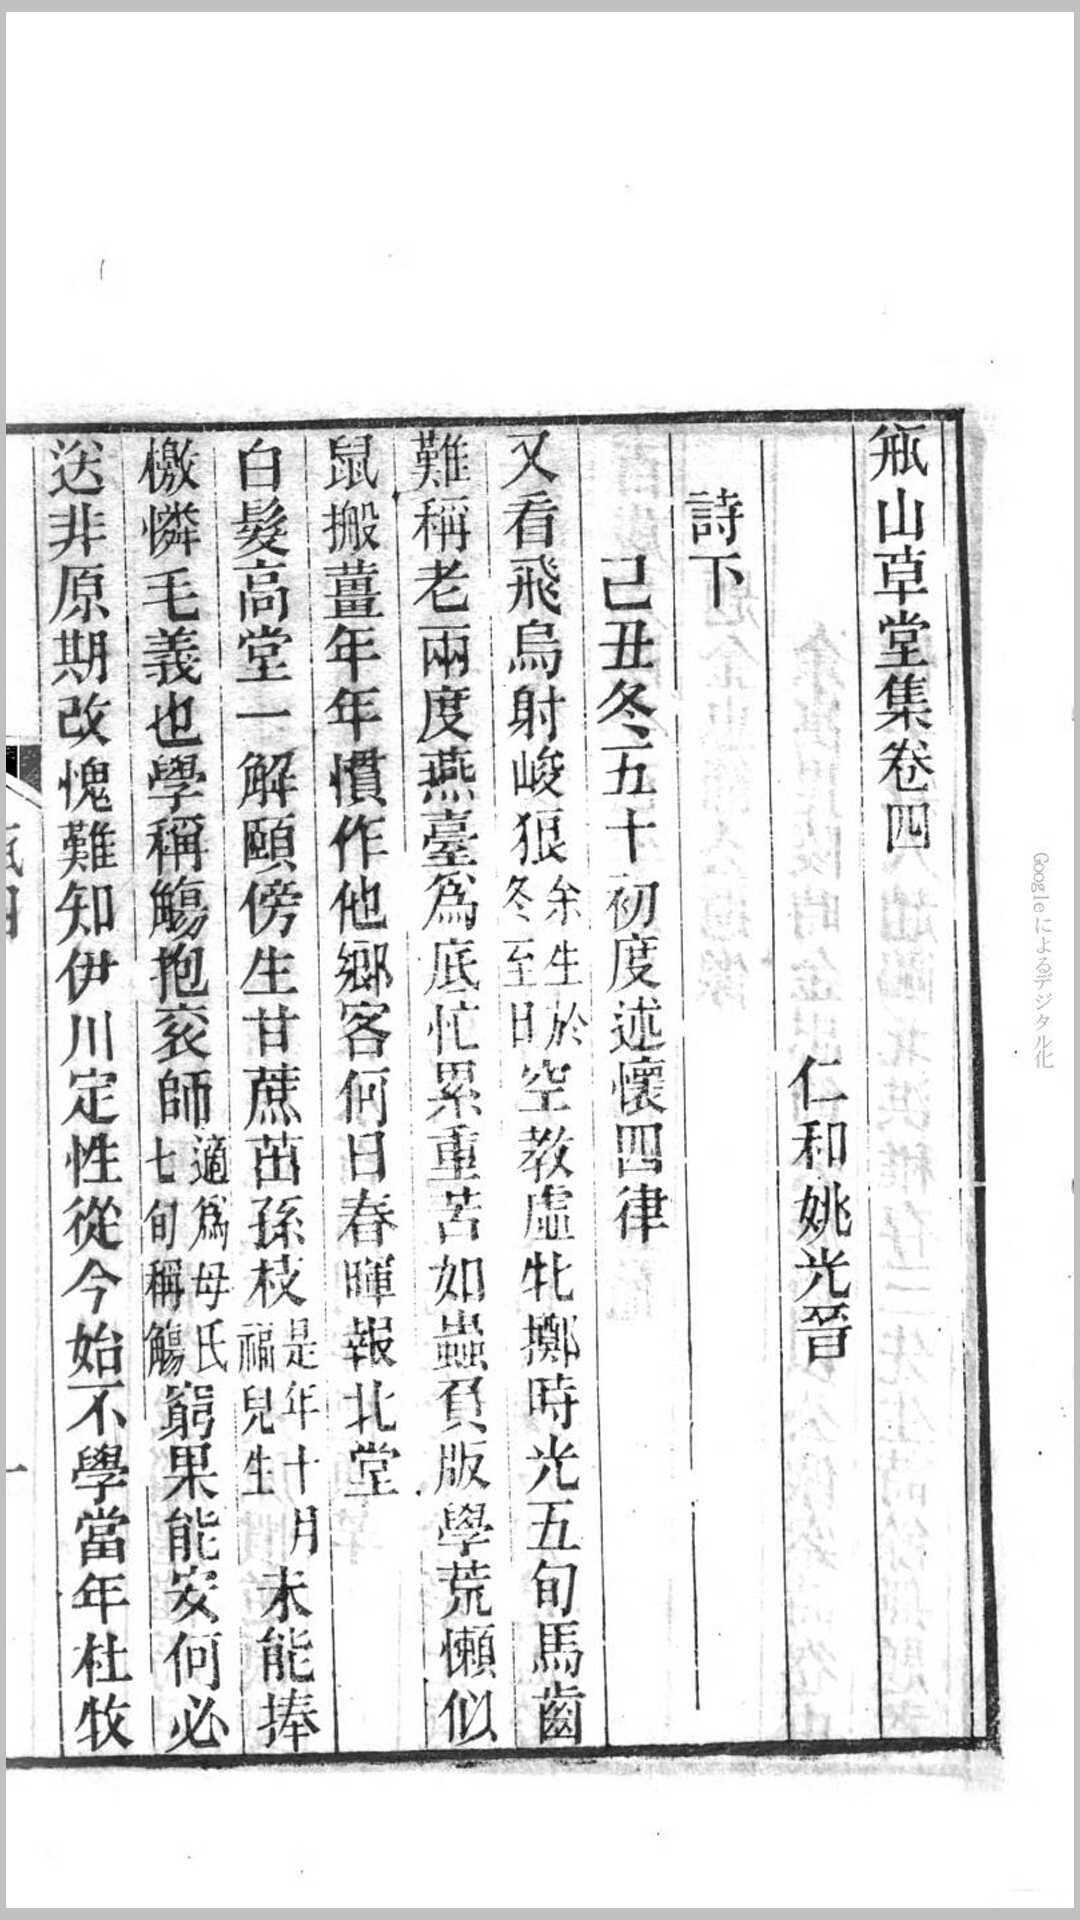 瓶山草堂集卷四
仁和姚光晉
詩下
己丑冬五十初度述懷四律
又看飛烏射峻狼余生於冬至日空教虛牝擲時光五旬馬齒
難稱老兩度燕臺爲底忙累重苦如蟲負版學荒懶似
鼠搬薑年年慣作他鄉客何日春暉報北堂
白髮高堂一解頤傍生甘蔗茁孫枝是年十月福兒生未能捧
檄憐毛義也學稱觴抱袁師適爲母氏七旬稱觴窮果能安何必
送非原期改愧難知伊川定性從今始不學當年杜牧
Googleによるデジタル化